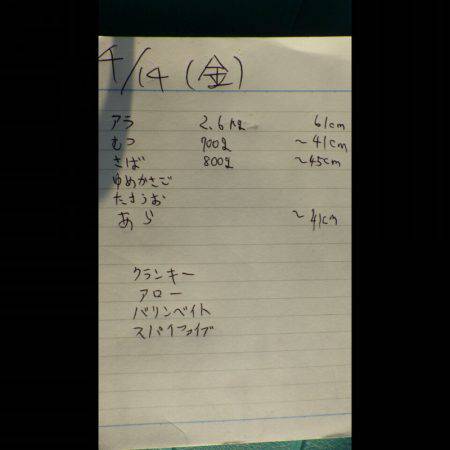 4/14 (金)
アラ 2.6kg 61cm
むつ 700g ~41cm
さば 800g ~45cm
ゆめかさご
たちうお
あら ~41cm
クランキー
アロー
バリンベイト
スパイファイブ